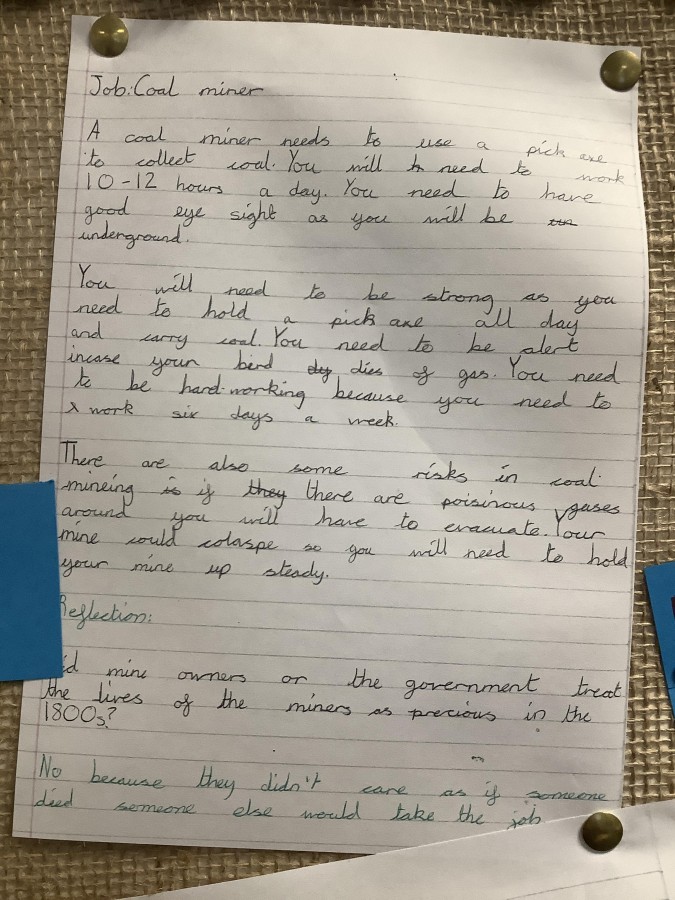 Job: Coal miner
A coal miner needs to use a pick axe
to collect coal. You will need to work
10-12 hours a day. You need to have
good eye sight as you will be
underground.
You will need to be strong as you
need to hold a pick axe all day
and carry coal. You need to be alert
incase your bird dies of gas. You need
to be hard-working because you need to
work six days a week.
There are also some risks in coal
mineing if there are poisinous gases
around you will have to evacuate. Your
mine could colaspe so you will need to hold
your mine up steady.
Reflection:
id mine owners or the government treat
the lives of the miners as precious in the
1800s?
No because they didn't care as if someone
died someone else would take the job